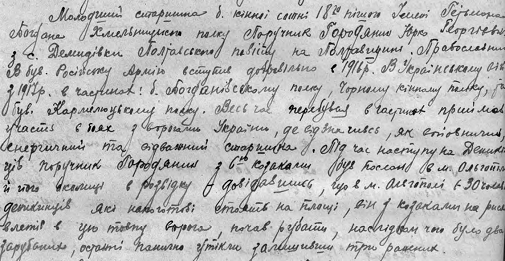 Молодший старшина б. кінної сотні 18ої пішого Имені Гетьмана
Богдана Хмельницького полку Поручник Городянин Юрко Георгієв
з с. Демидівки Полтавського повіту на Полтавщині. Православний
В був. Російську Армію вступив добровільно в 1916р. В Українському Вій
з 1917р. в частинах: б. Богданівському полку Чорному кінному полку,
був. Кармелюцькому полку. Весь час перебував в частинах приймав
участь в боях з ворогами України, де відзначився, як хоровитий,
енергичний та відважний старшина. Під час наступу на Деники
ців поручник Городянин з 6ю козаками був посланий в м. Ольгопіль
й його околиці в розвідку й довідавшись, що в м. Ольгополі є 30 чоловік
денікінців які наготові стоять на площі, він з козаками на рисях
влетів в цю товпу ворога, почав рубати, наслідком чого було два
зарубаних, останні панично утікли залишивши три ранених.